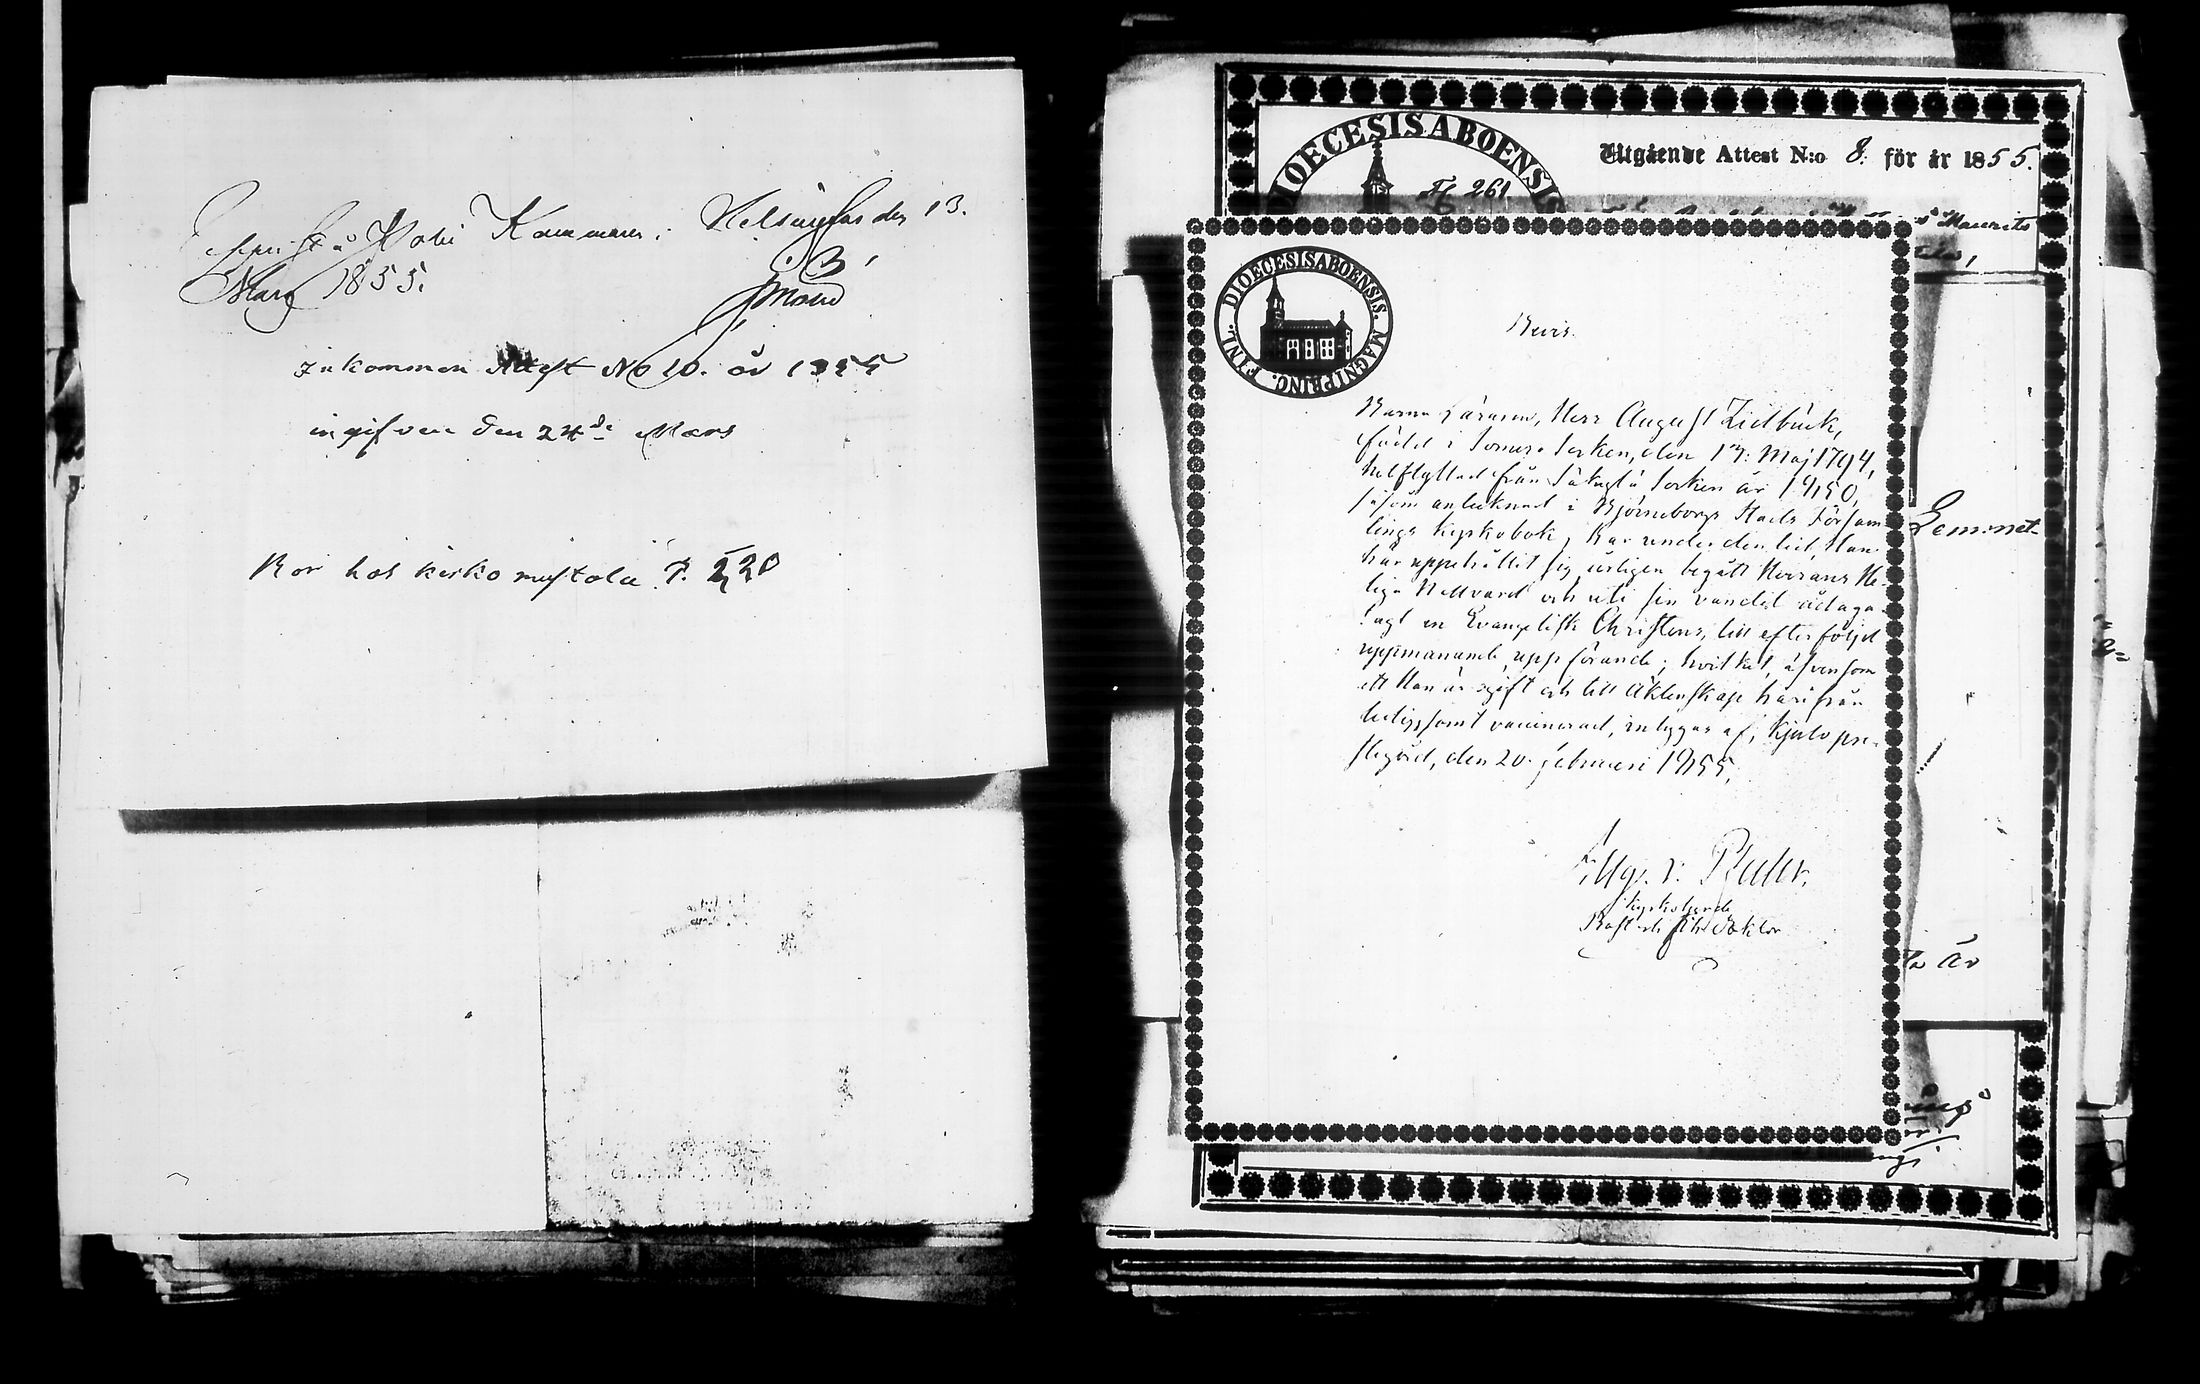 Kammare i Helsingfors den 13.
Mars 1855.
Inkommen Attest No 10. år 1855
ingifven den 24de Mars
Bor hos kirko mustola P. 220
DIOECESIS ABOENSIS
Utgående Attest N:o 8. för år 1855.
261
Maurits
DIOECESIS ABOENSIS. MAGNI PRINC. FINL.
Bevis.
Barna Läraren, Herr August Lidbäck,
född i Somero Socken, den 17: Maj 1794,
hitflyttad från Säkylä Socken år 1850,
såsom antecknad i Björneborgs Stads Försam-
lings Kyrkobok, har under den tid, Han
här uppehållit sig årligen begått Herrans He-
liga Nattvard och uti sin vandel ådaga-
lagt en Evangelisk Christens, till efterföljd
uppmanande uppförande; hvilket, äfvensom
att Han är ogift och till Äktenskap härifrån
ledig, samt vaccinerad, intygar af, Kjulo pre-
stgård, den 20. Februari 1855.
Kyrkoherde
Lemmet
år